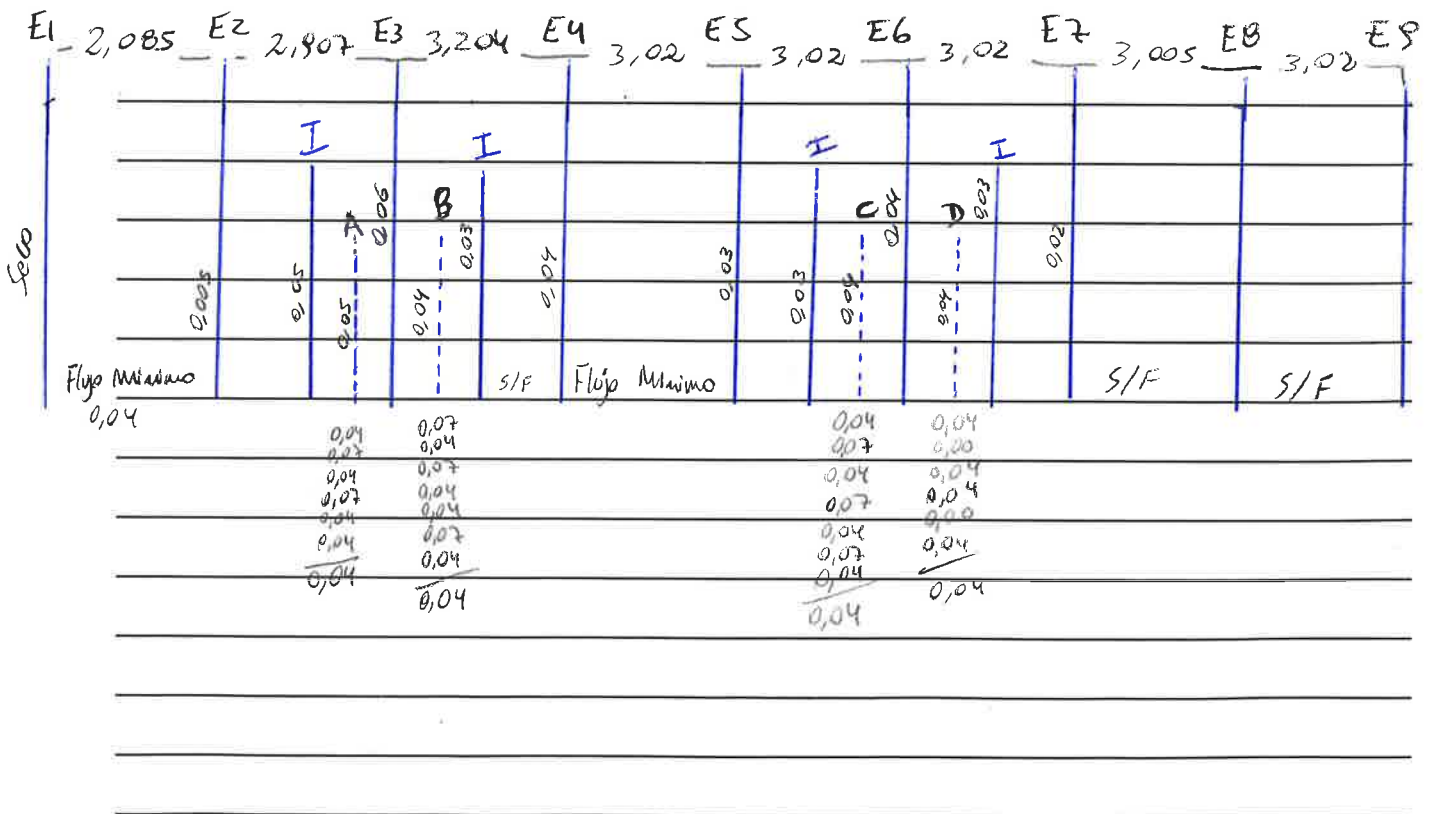 E1 2,085 E2 2,907 E3 3,204 E4 3,02 E5 3,02 E6 3,02 E7 3,005 E8 3,02 E9
I I I I
A 0,06 B C 0,04 D 0,03
Seco 0,005 0,05 0,05 0,04 0,03 0,04 0,03 0,03 0,04 0,04 0,02
Flujo Minimo S/F Flujo Minimo S/F S/F
0,04
0,04 0,07 0,04 0,04
0,07 0,04 0,07 0,00
0,04 0,07 0,04 0,04
0,07 0,04 0,07 0,04
0,04 0,04 0,04 0,00
0,04 0,07 0,07 0,04
0,04 0,04 0,04 0,04
0,04 0,04